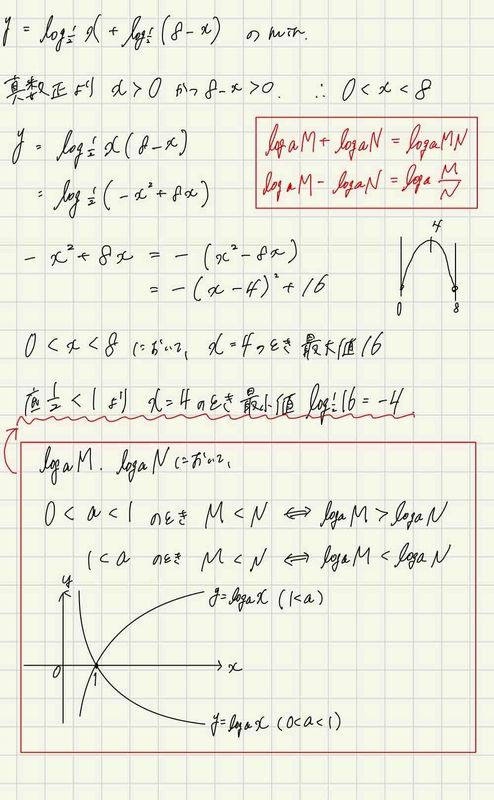 y = log½ x + log½ (8-x) の min.
真数正より x>0 かつ 8-x>0. ∴ 0<x<8
y = log½ x(8-x)
= log½ (-x²+8x)
logaM + logaN = logaMN
logaM - logaN = loga M/N
-x²+8x = -(x²-8x)
= -(x-4)²+16
4
0 8
0<x<8 において, x=4のとき 最大値16
底½<1より x=4のとき最小値 log½16=-4
logaM. logaNにおいて,
0<a<1 のとき M<N ⇔ logaM>logaN
1<a のとき M<N ⇔ logaM<logaN
y
y=logax (1<a)
0 1 x
y=logax (0<a<1)